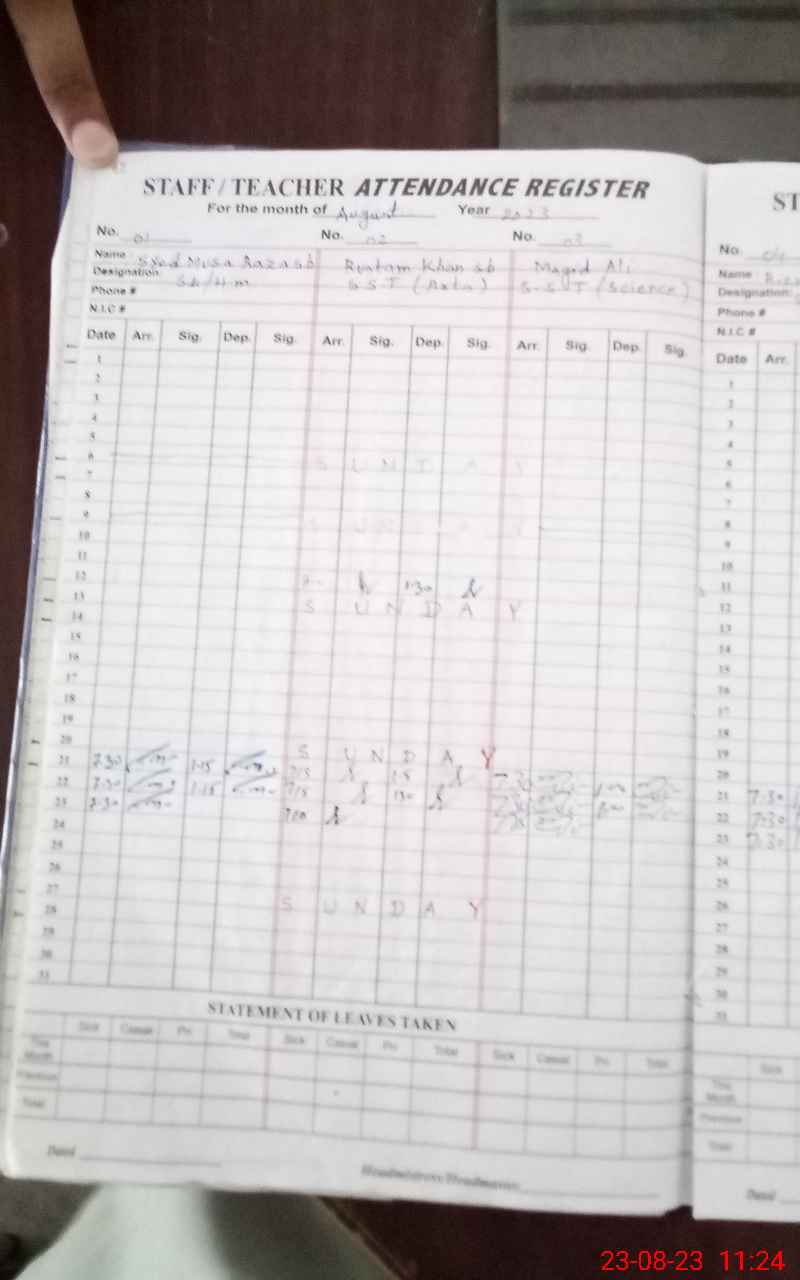 STAFF / TEACHER ATTENDANCE REGISTER
For the month of August Year 2023
No. 01 No. 02 No. 03
Name Syed Musa Raza sb Rustam Khan sb Majid Ali
Designation S.S.T (Arts) S.S.T (Science)
Phone #
N.I.C #
Date Arr. Sig. Dep. Sig. Arr. Sig. Dep. Sig. Arr. Sig. Dep. Sig.
1
2
3
4
5
6 SUNDAY
7
8
9
10
11
12 1.30
13 SUNDAY
14
15
16
17
18
19
20 SUNDAY
21 7.30 1.15 7/15 1.5 7.30
22 7.30 1.15 7/15 130
23 7.30 7/20
24
25
26
27 SUNDAY
28
29
30
31
STATEMENT OF LEAVES TAKEN
Sick Casual Pri Total Sick Casual Pri Total Sick Casual Pri Total
This Month
Previous
Total
Dated
Headmistress/Headmaster
ST
No.
Name
Designation
Phone #
N.I.C #
Date Arr.
1
2
3
4
5
6
7
8
9
10
11
12
13
14
15
16
17
18
19
20
21 7.30
22 7.30
23 7.30
24
25
26
27
28
29
30
31
Sick
This Month
Previous
Total
Dated
23-08-23 11:24